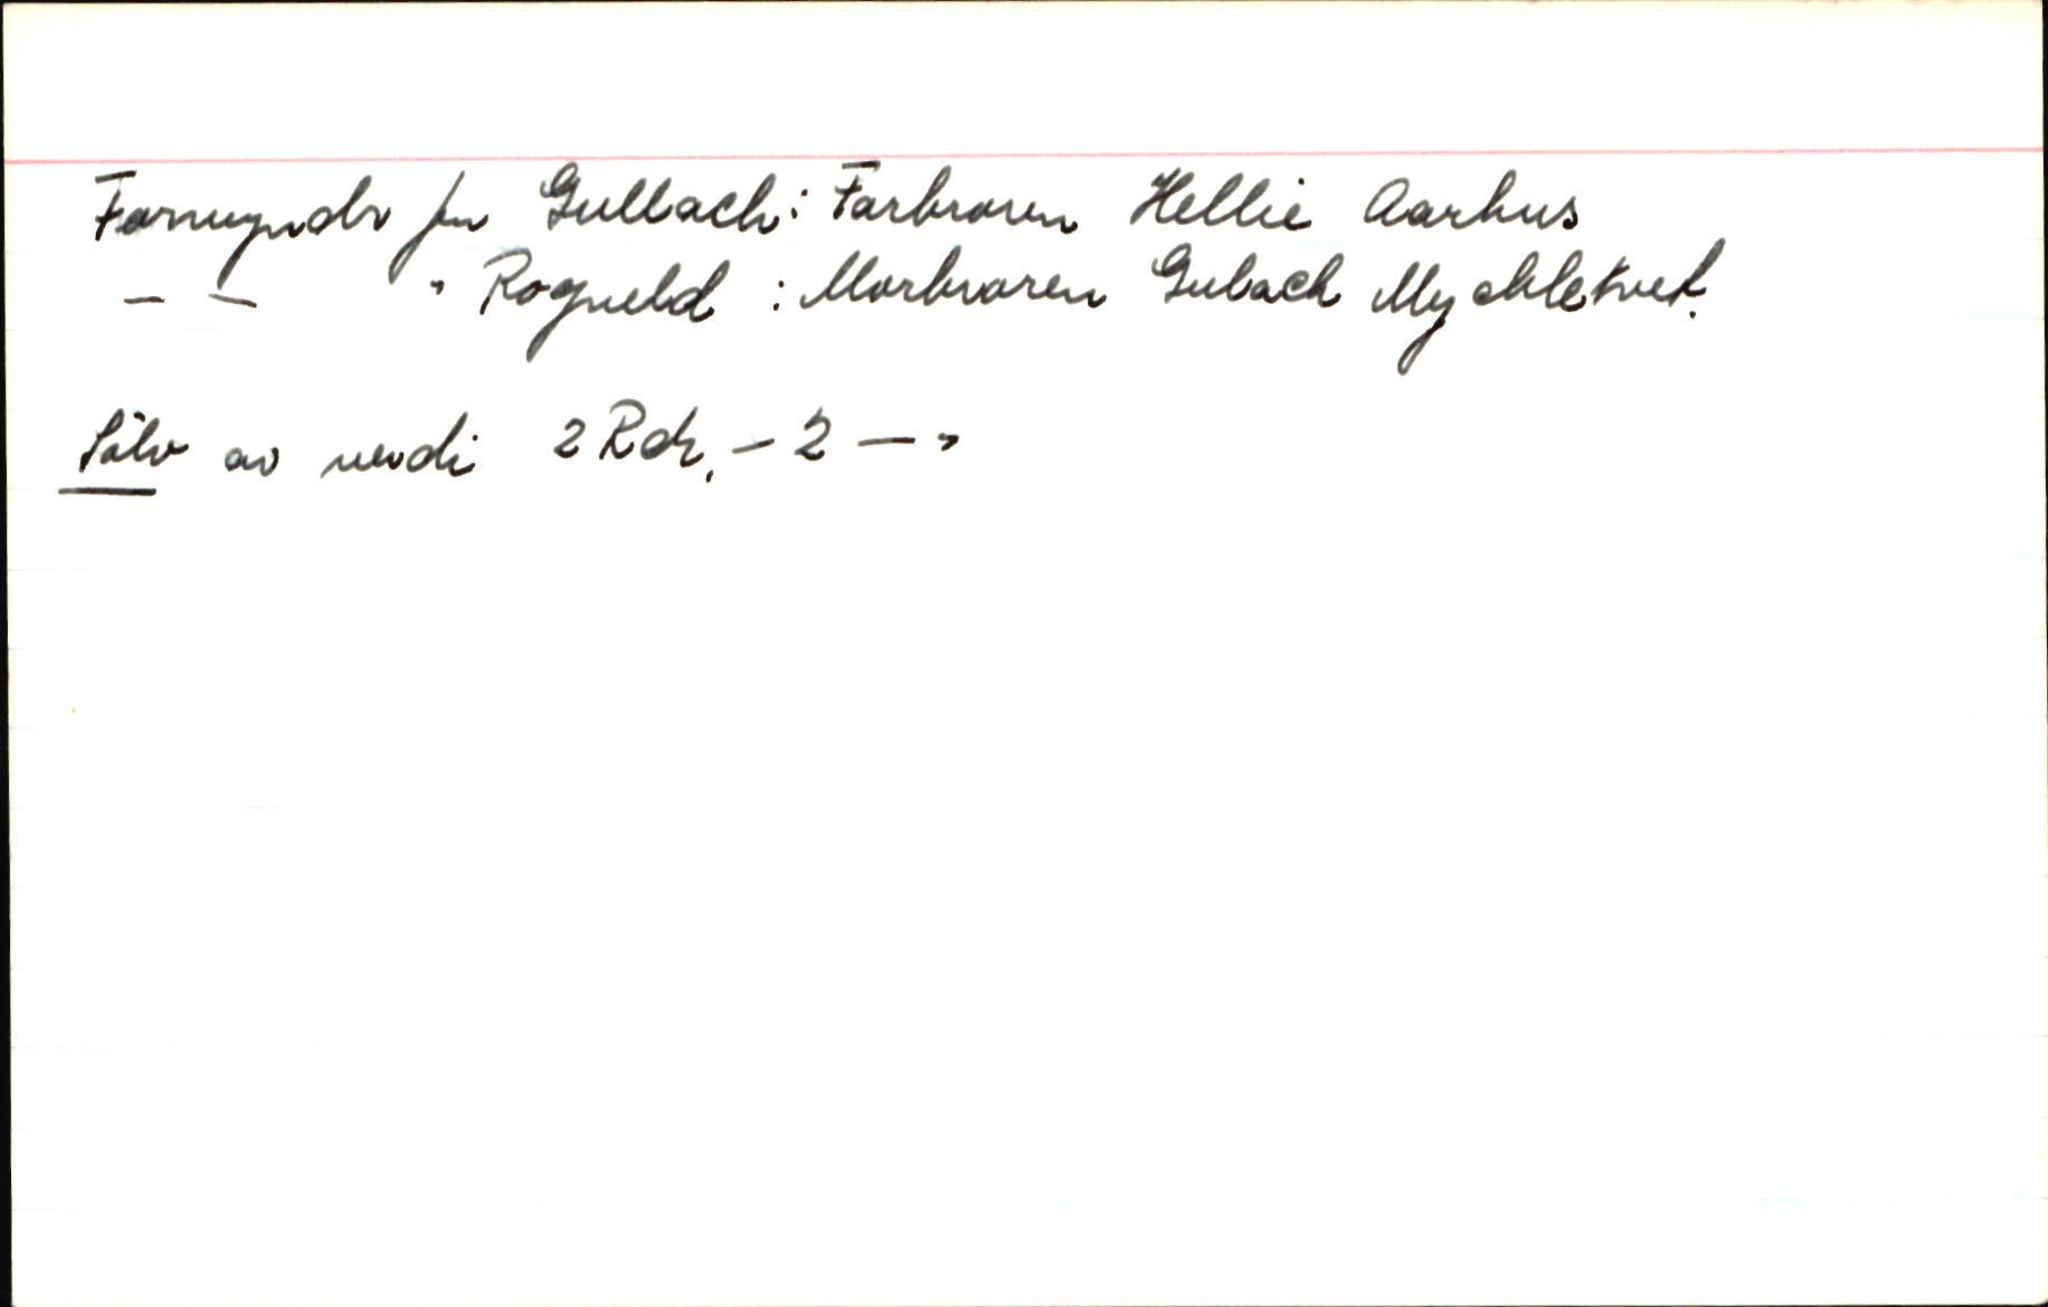 Formyndr for Gullach: Farbroren Hellie Aarhus
— — " Rogneld : Morbroren Gulach Mychletvet.
Sölv av verdi 2 Rdr. – 2 — "